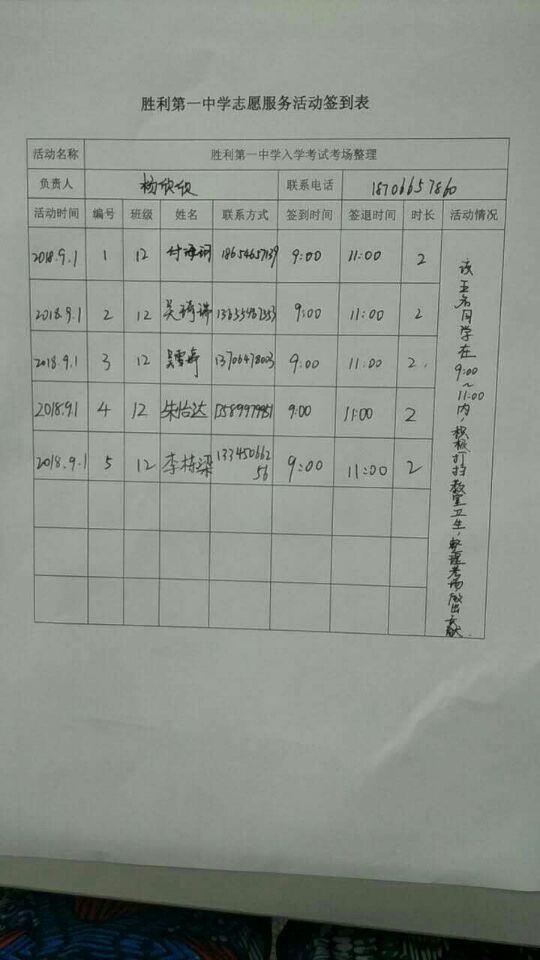 胜利第一中学志愿服务活动签到表
活动名称 胜利第一中学入学考试考场整理
负责人 杨欣欣 联系电话 18706657860
活动时间 编号 班级 姓名 联系方式 签到时间 签退时间 时长 活动情况
2018.9.1 1 12 9:00 11:00 2
2018.9.1 2 12 9:00 11:00 2
2018.9.1 3 12 13706478003 9:00 11:00 2
2018.9.1 4 12 朱怡达 9:00 11:00 2
2018.9.1 5 12 李栋梁 13345066256 9:00 11:00 2
该五名同学在9:00~11:00内,积极打扫教室卫生,整理考场做出贡献.